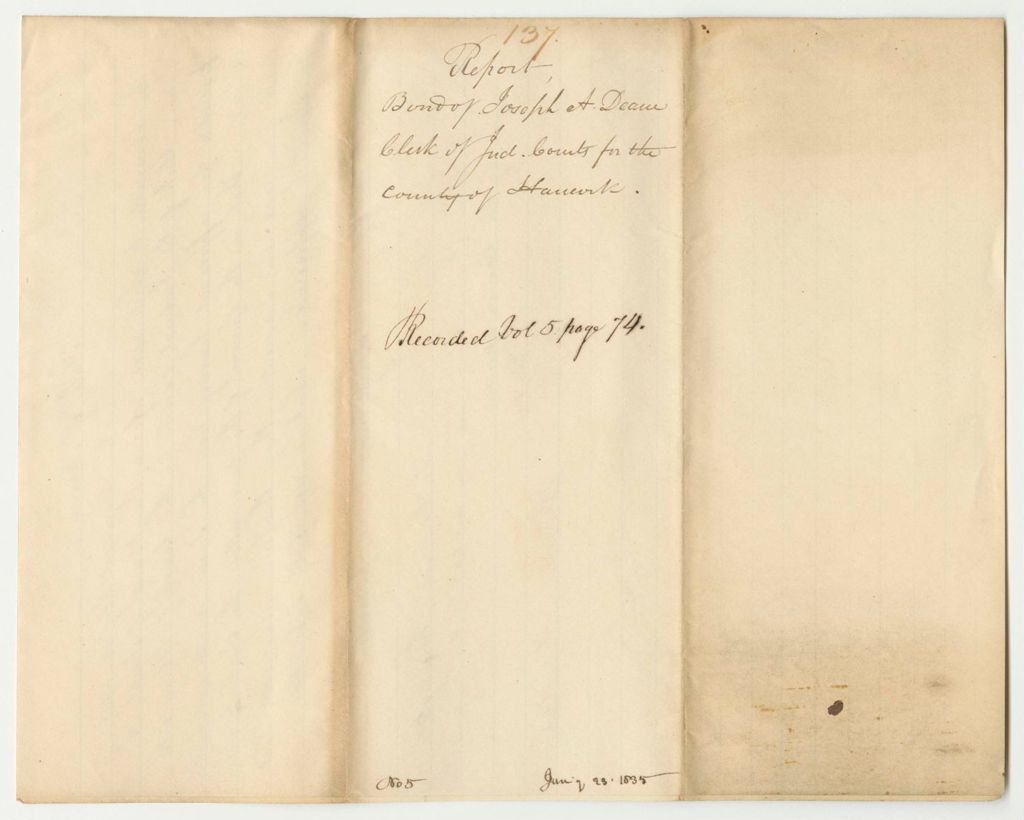 137.
Report,
Bond of Joseph A. Deane
Clerk of Jud. Courts for the
County of Hancock.
Recorded Vol 5. page 74.
No 5
Jan'y 23. 1835